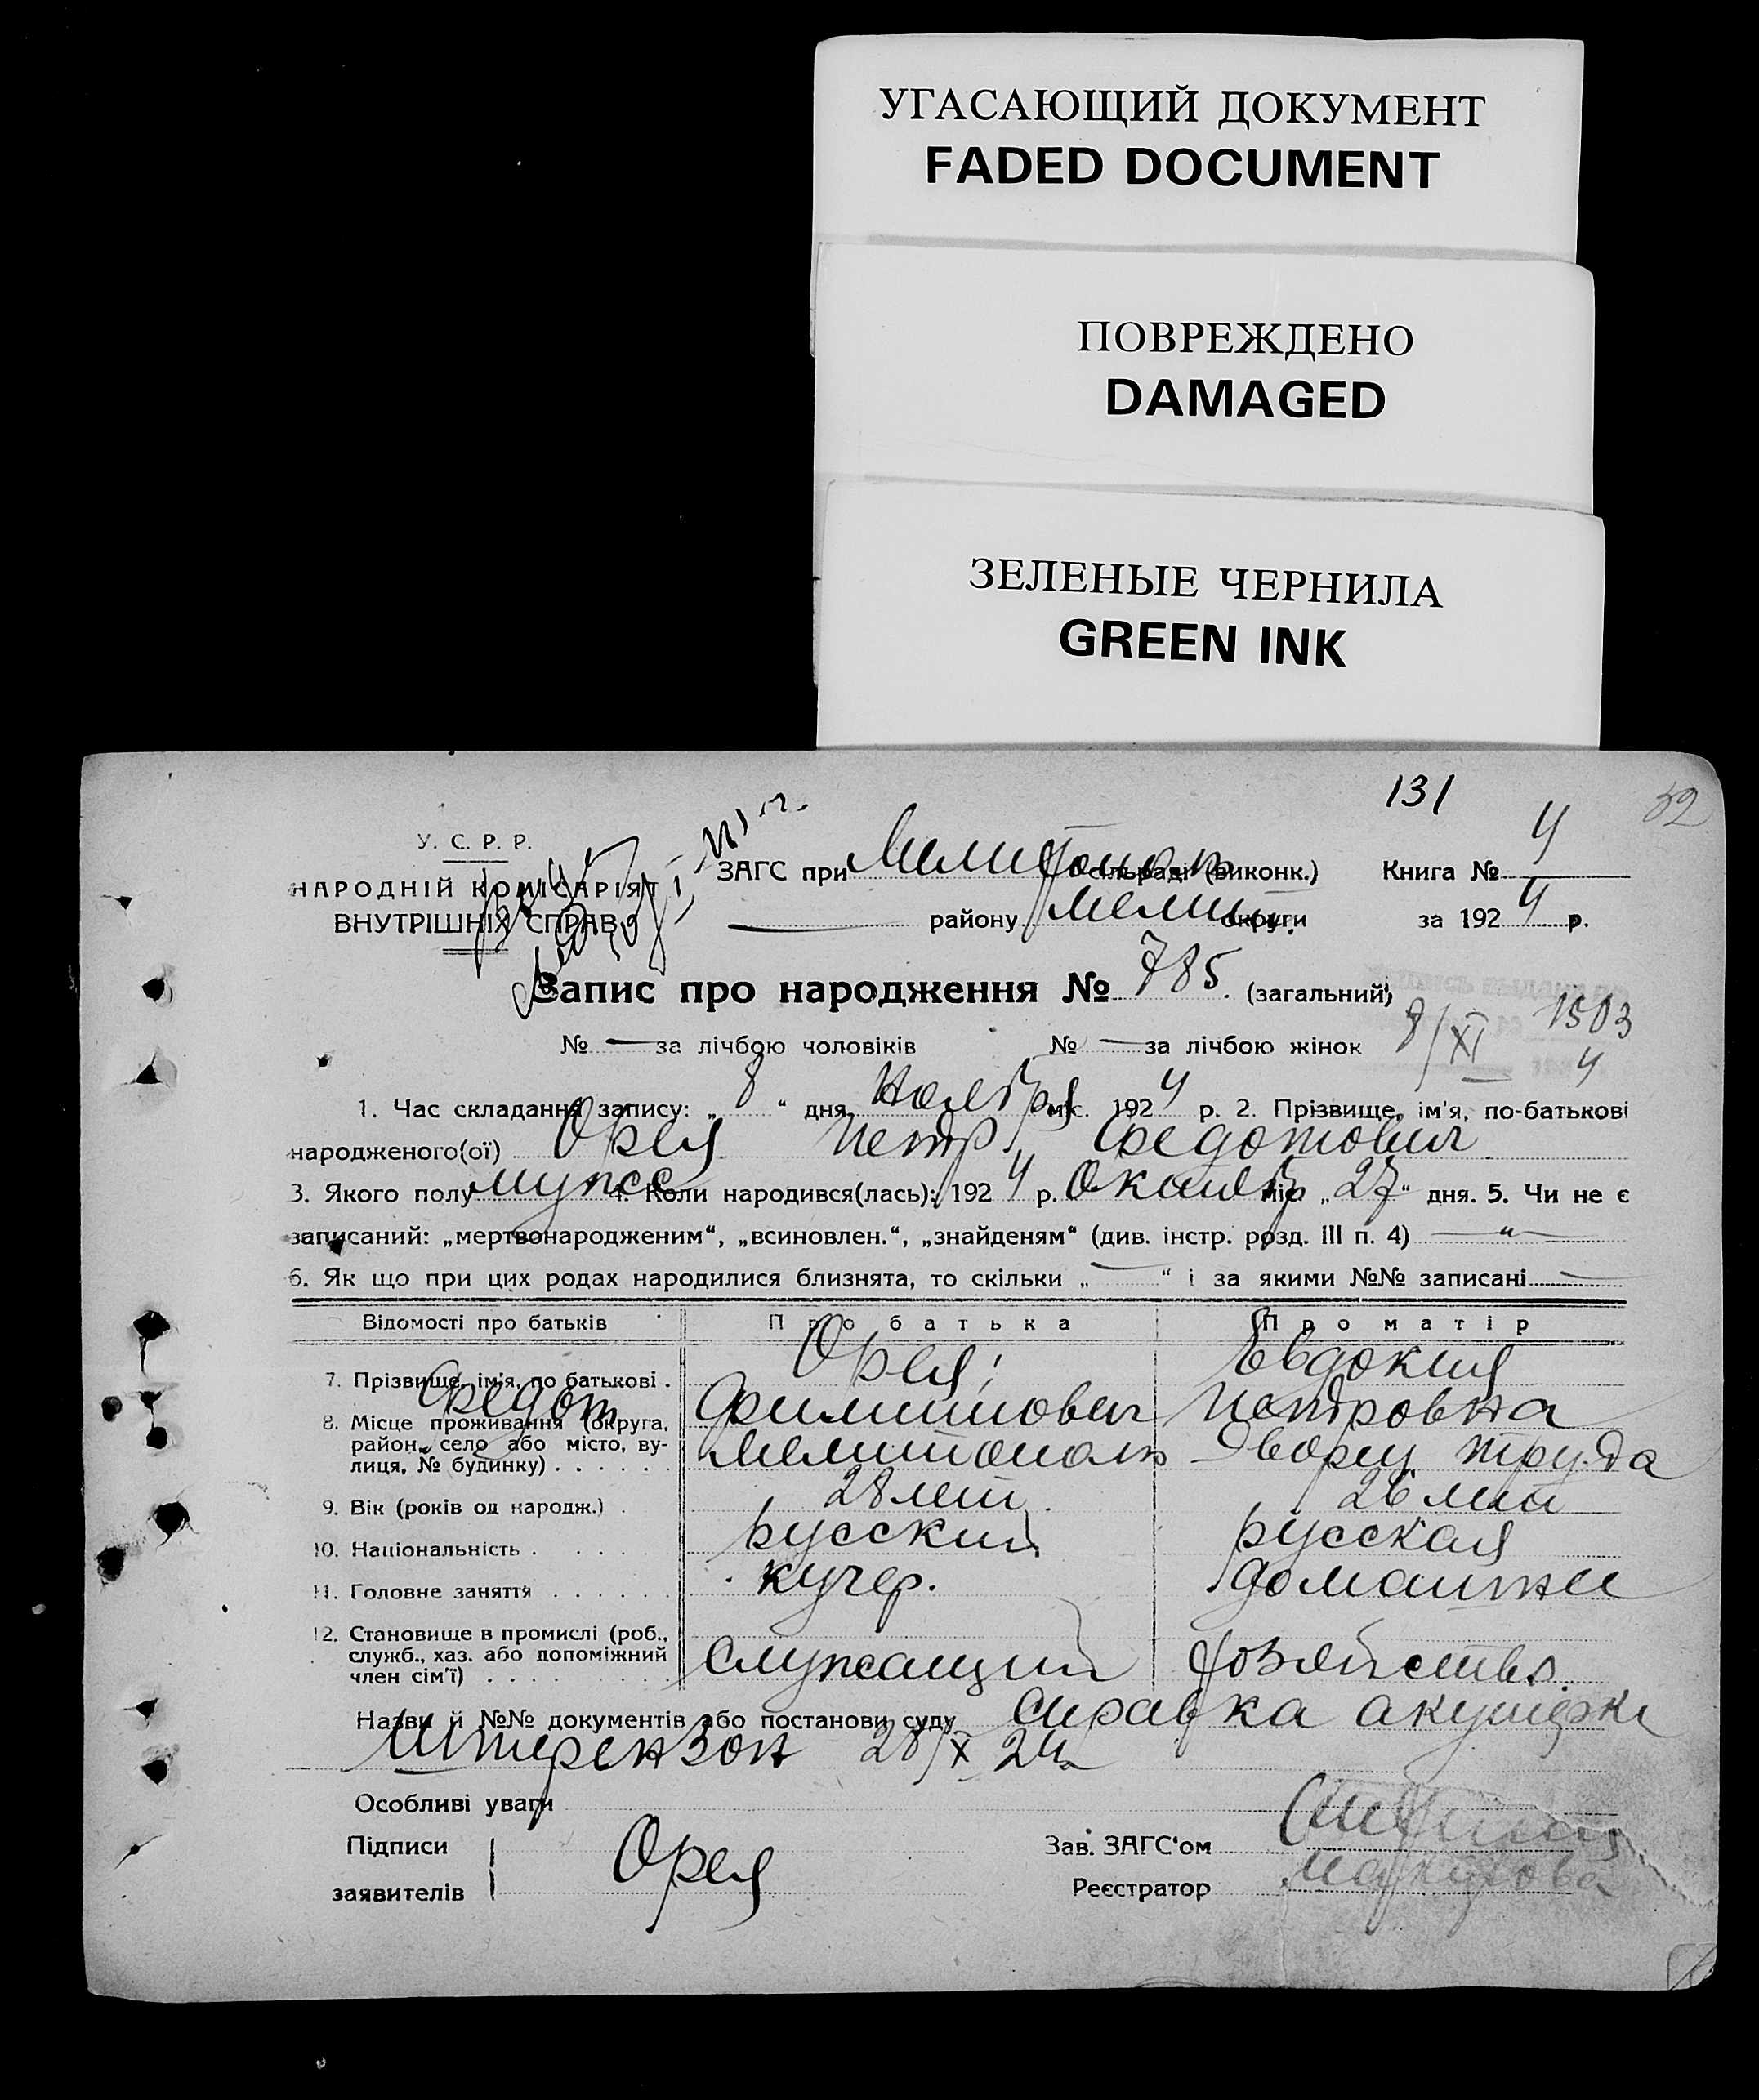 УГАСАЮЩИЙ ДОКУМЕНТ
FADED DOCUMENT
ПОВРЕЖДЕНО
DAMAGED
ЗЕЛЕНЫЕ ЧЕРНИЛА
GREEN INK
131
52
У. С. Р. Р.
НАРОДНІЙ КОМІСАРІЯТ
ВНУТРІШНІХ СПРАВ
ЗАГС при Мелитополь сільраді (виконк.) Книга № 4
району Мелит. округи за 1924 р.
Запис про народження № 785. (загальний)
№ — за лічбою чоловіків № — за лічбою жінок
8/XI 1503
4
1. Час складання запису: „ 8 “ дня Ноября міс. 1924 р. 2. Прізвище, ім'я, по-батькові
народженого(ої) Орел Петр Федотович
3. Якого полу мужс 4. Коли народився(лась): 1924 р. Октяб міс „27“ дня. 5. Чи не є
записаний: „мертвонародженим“, „всиновлен.“, „знайденям“ (див. інстр. розд. III п. 4) — “ —
6. Як що при цих родах народилися близнята, то скільки „ — “ і за якими №№ записані —
Відомості про батьків Про батька Про матір
7. Прізвище, ім'я, по батькові . Орел; Евдокия
Федот Филиппович Петровна
8. Місце проживання (округа,
район, село або місто, ву-
лиця, № будинку) . . . . . . Мелитополь Дворец труда
9. Вік (років од народж.) . 28 лет. 26 лет
10. Національність . . . . . русский русская
11. Головне заняття . . . . . . кучер. домашнее
12. Становище в промислі (роб.,
служб., хаз. або допоміжний
член сім'ї) . . . . . . . . . Служащий хозяйство.
Назви й №№ документів або постанови суду Справка акушерки
Штерензон 28/X 24
Особливі уваги
Підписи
заявителів Орел
Зав. ЗАГС'ом
Реєстратор